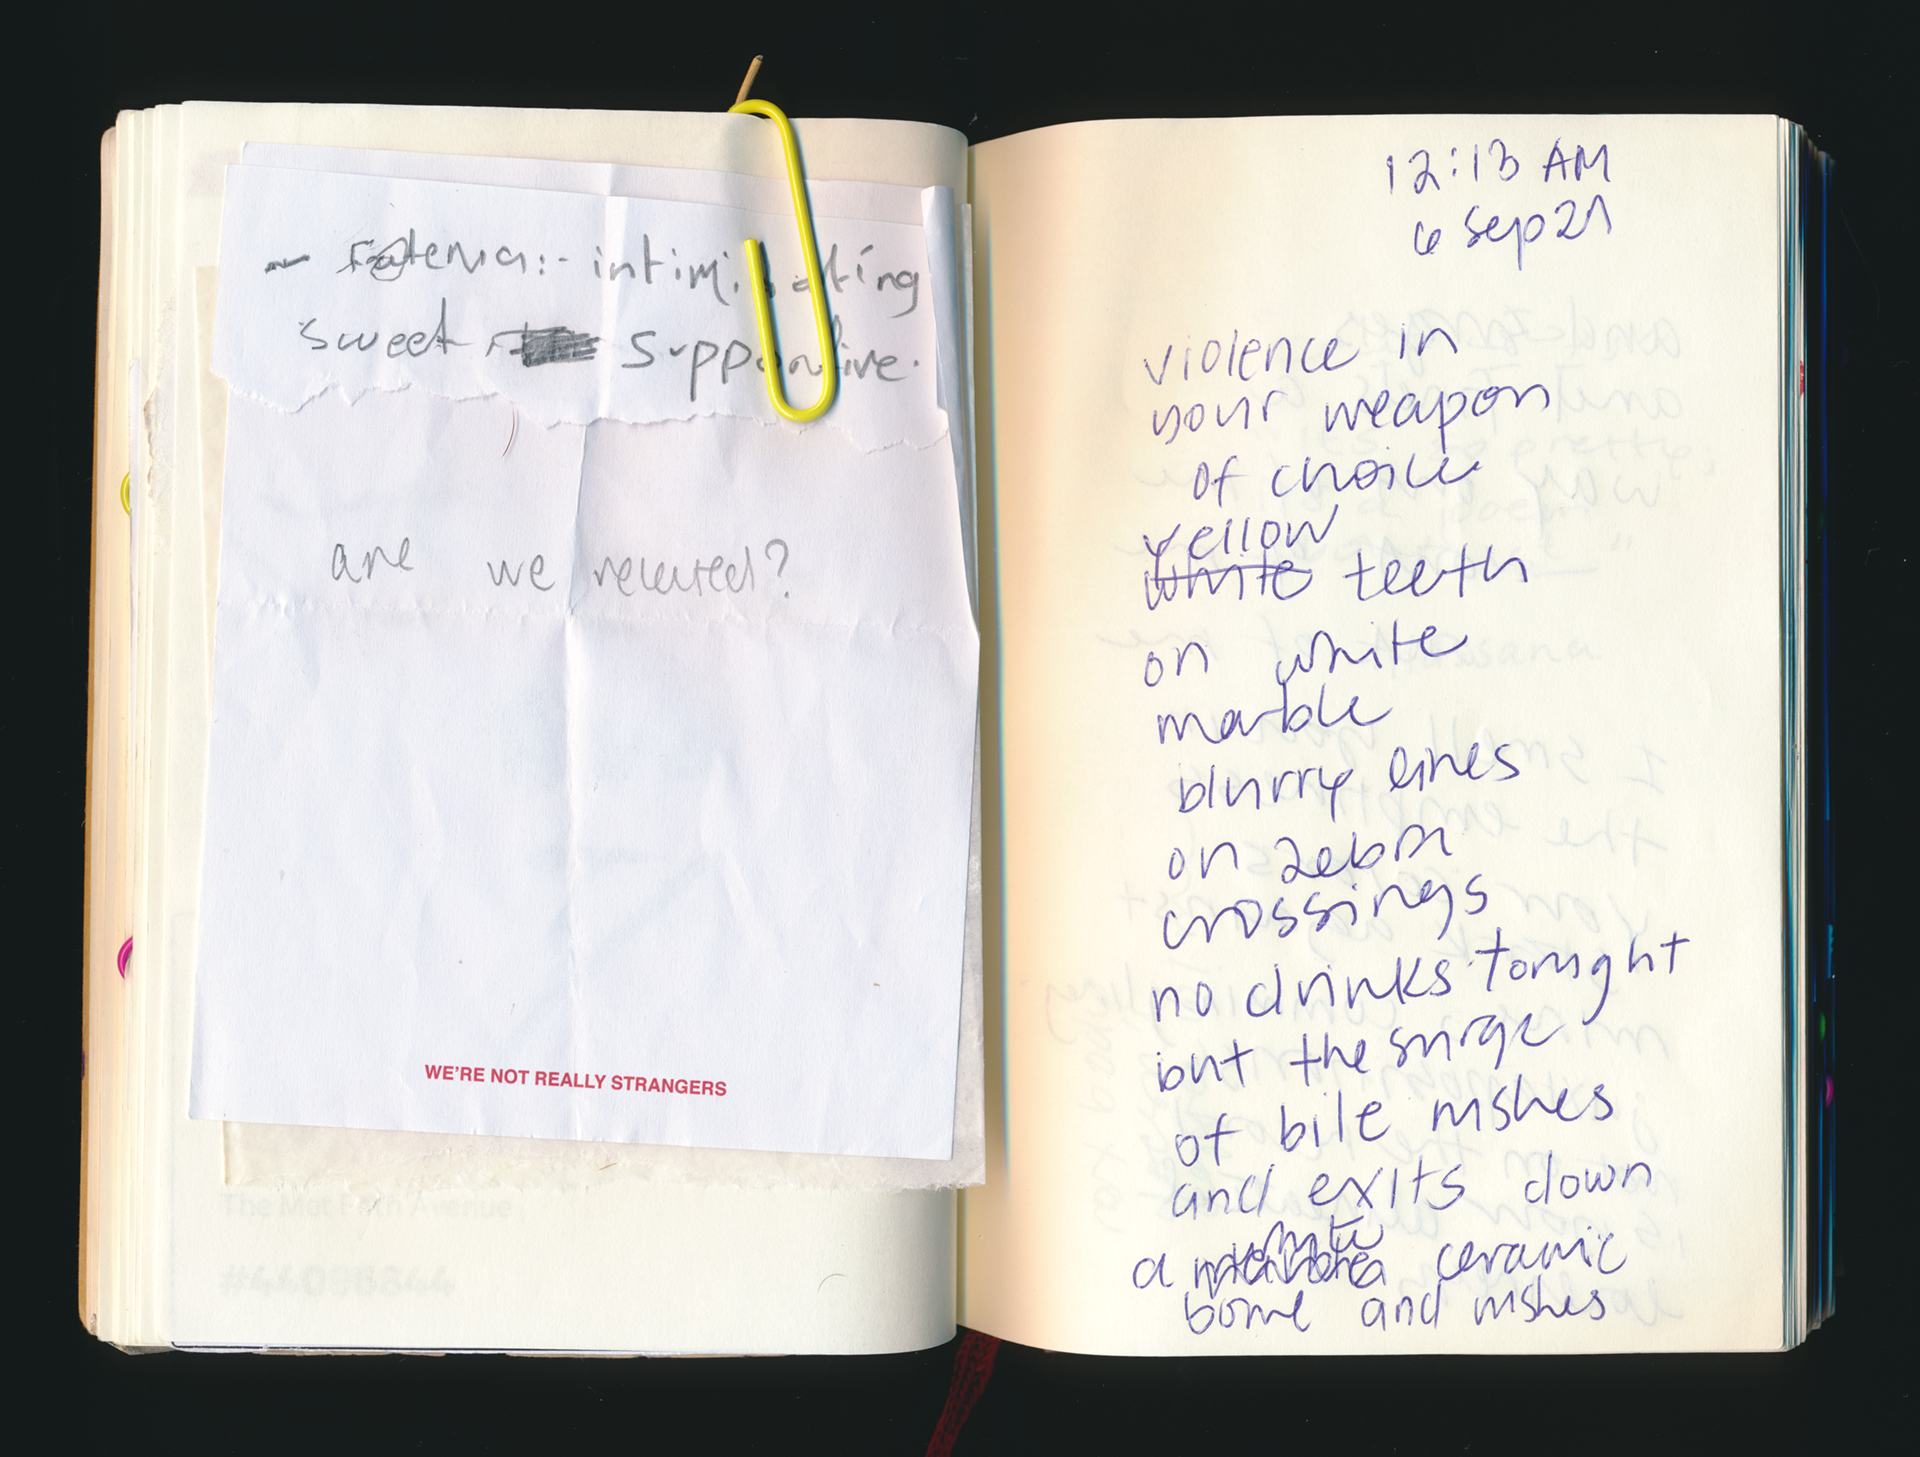 ~ Fatema:- intimidating
sweet supportive.
are we related?
WE'RE NOT REALLY STRANGERS
The Met Fifth Avenue
12:13 AM
6 Sep 21
violence in
your weapon
of choice
yellow
white teeth
on white
marble
blurry lines
on zebra
crossings
no drinks tonight
but the surge
of bile rushes
and exits down
a white ceramic
bowl and rushes